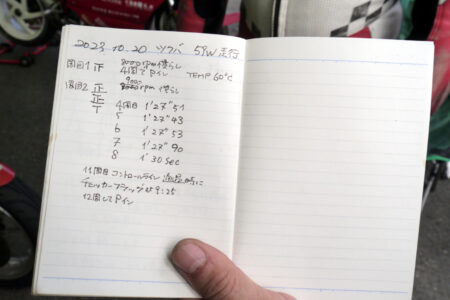 2023 10.20 ツクバ 59W 走行
周回1 正 8000rpm慣らし
4周でPイン TEMP 60℃
周回2 正 9000rpm慣らし
正
T 4周目 1'27"51
5 1'27"43
6 1'27"53
7 1'27"90
8 1'30sec
11周目 コントロールライン通過時に
チェッカーフラッグ at 9:25
12周してPイン